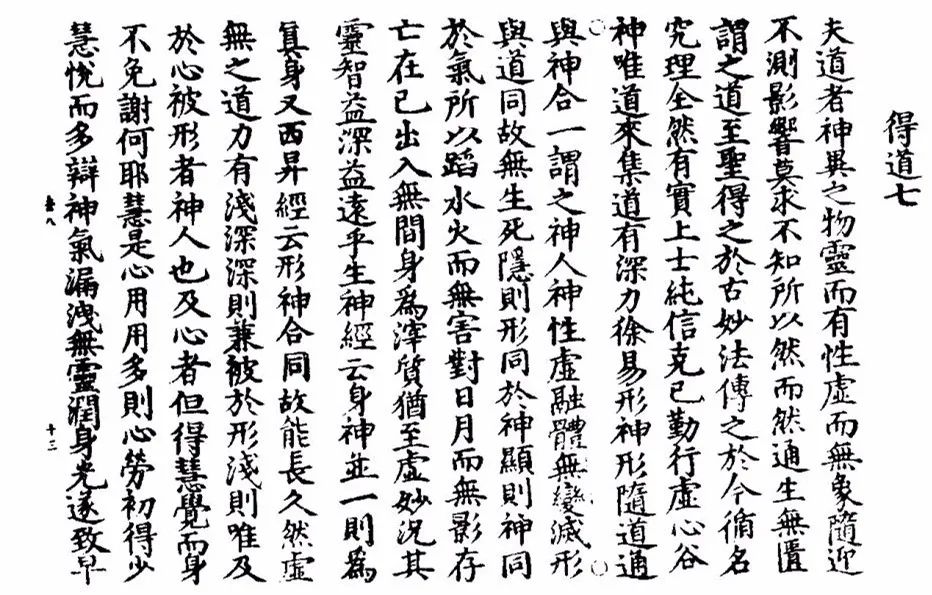 得道七
夫道者神異之物靈而有性虛而無象隨迎
不測影響莫求不知所以然而然通生無匱
謂之道至聖得之於古妙法傳之於今循名
究理全然有實上士純信克已勤行虛心谷
神唯道來集道有深力徐易形神形隨道通
與神合一謂之神人神性虛融體無變滅形
與道同故無生死隱則形同於神顯則神同
於氣所以蹈水火而無害對日月而無影存
亡在已出入無間身為滓質猶至虛妙況其
靈智益深益遠乎生神經云身神並一則為
真身又西昇經云形神合同故能長久然虛
無之道力有淺深深則兼被於形淺則唯及
於心被形者神人也及心者但得慧覺而身
不免謝何耶慧是心用用多則心勞初得少
慧悅而多辯神氣漏洩無靈潤身光遂致早
十二